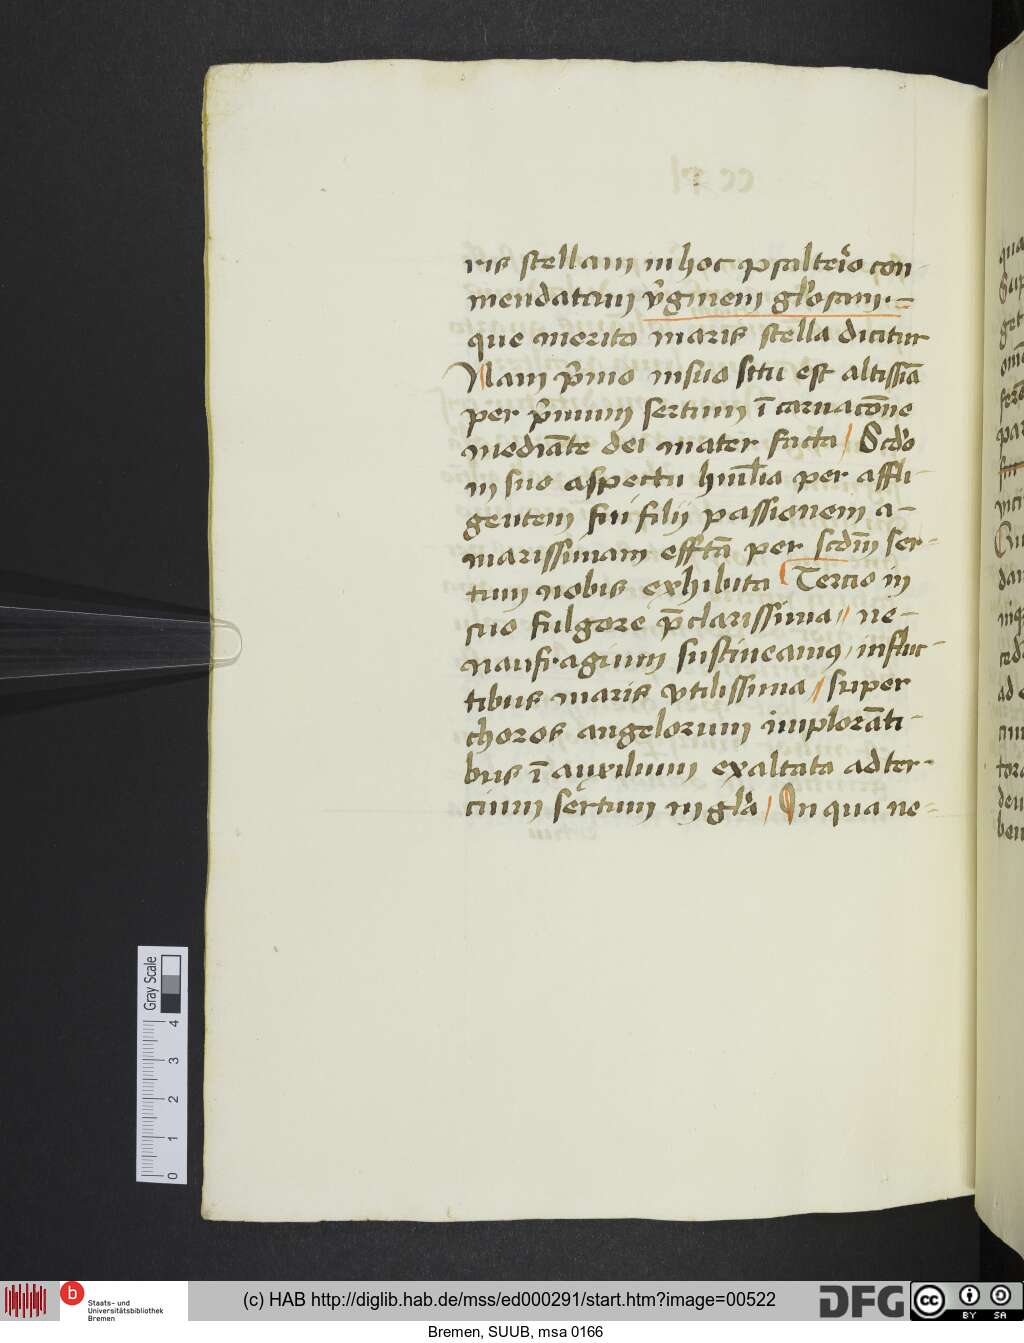 ris stellam in hoc psalteĩo con-
mendatam v̉ginem gl̉osam·-
que merito maris stella dicitur
Nam p̉mo in suo situ est altissīa
per p̉mum sertum ī carnacōne
mediāte dei mater facta / Scd̉o
in suo aspectu humĺia per affli-
gentem sui filii passionem a-
marissimam effctā per scd̄m ser-
tum nobis exhibita Tercio in
suo fulgore p̄clarissima // ne-
naufragium sustineamꝰ, in fluc-
tibus maris vtilissima // super
choros angelorum implorāti-
bus ī auxilium exaltata ad ter-
cium sertum in gl̉a / In qua ne-
Gray Scale
4
3
2
1
0
b
Staats- und
Universitätsbibliothek
Bremen
(c) HAB http://diglib.hab.de/mss/ed000291/start.htm?image=00522
DFG
cc
BY SA
Bremen, SUUB, msa 0166